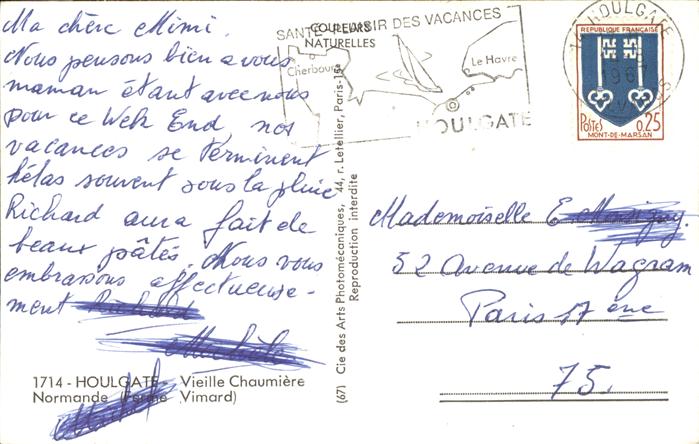 Ma chère Mimi.
Nous pensons bien a vous
maman étant avec nous
pour ce Week End, nos
vacances se terminent
hélas souvent sous la pluie
Richard aura fait de
beaux pâtés. Nous vous
embrassons affectueuse-
ment
1714 - HOULGATE - Vieille Chaumière
Normande (Ferme Vimard)
COULEURS
NATURELLES
SANTE PLAISIR DES VACANCES
Cherbourg
Le Havre
HOULGATE
14 HOULGATE
1967
CALVADOS
REPUBLIQUE FRANÇAISE
POSTES 0,25
MONT-DE-MARSAN
(67) Cie des Arts Photomécaniques, 44, r. Letellier, Paris-15e
Reproduction interdite
Mademoiselle E.
52 Avenue de Wagram
Paris 17 ème
75.